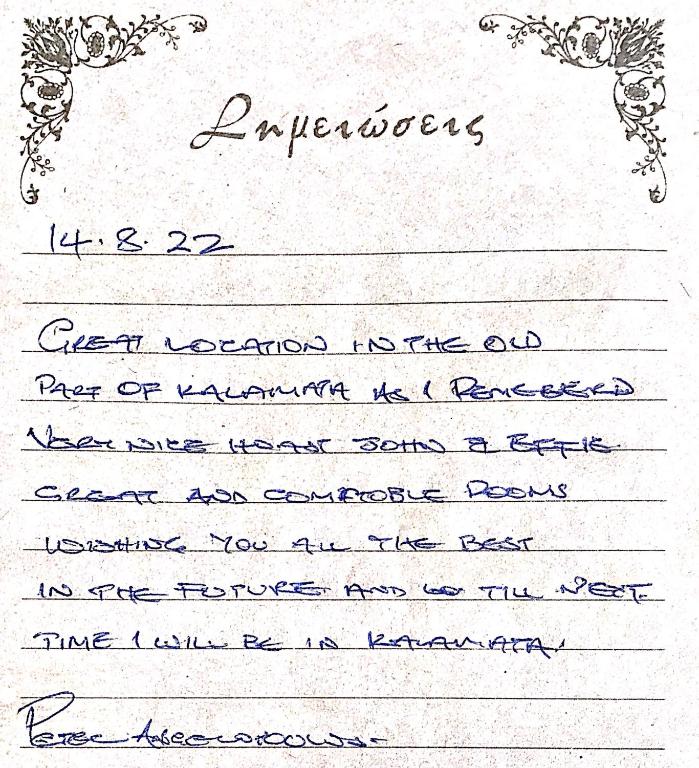 Σημειώσεις
14.8.22
GREAT LOCATION IN THE OLD
PART OF KALAMATA AS I REMEBERD
VERY NICE HOAST JOHN & EFFIE
GREAT AND COMFTOBLE ROOMS
WISHING YOU ALL THE BEST
IN THE FUTURE AND TILL NEXT
TIME I WILL BE IN KALAMATA!
PETER